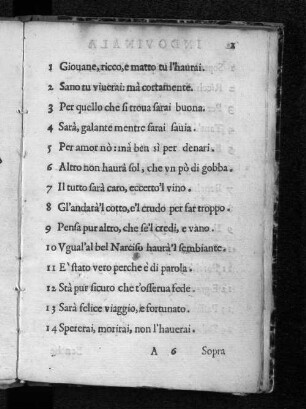 1 Giouane, ricco, e matto tu l'haurai.
2 Sano tu viuerai: mà cortamente.
3 Per quello che si troua sarai buona.
4 Sarà, galante mentre sarai sauia.
5 Per amor nò: ma ben sì per denari.
6 Altro non haurà sol, che vn pò di gobba.
7 Il tutto sarà caro, eccetto'l vino.
8 Gl'andarà'l cotto, e'l crudo per far troppo.
9 Pensa pur altro, che se'l credi, e vàno.
10 Vgual'al bel Narciso haurà'l sembiante.
11 E' stato vero perche è di parola.
12 Stà pur sicuro che t'osserua fede.
13 Sarà felice viaggio, e fortunato.
14 Spererai, morirai, non l'hauerai.
A 6 Sopra